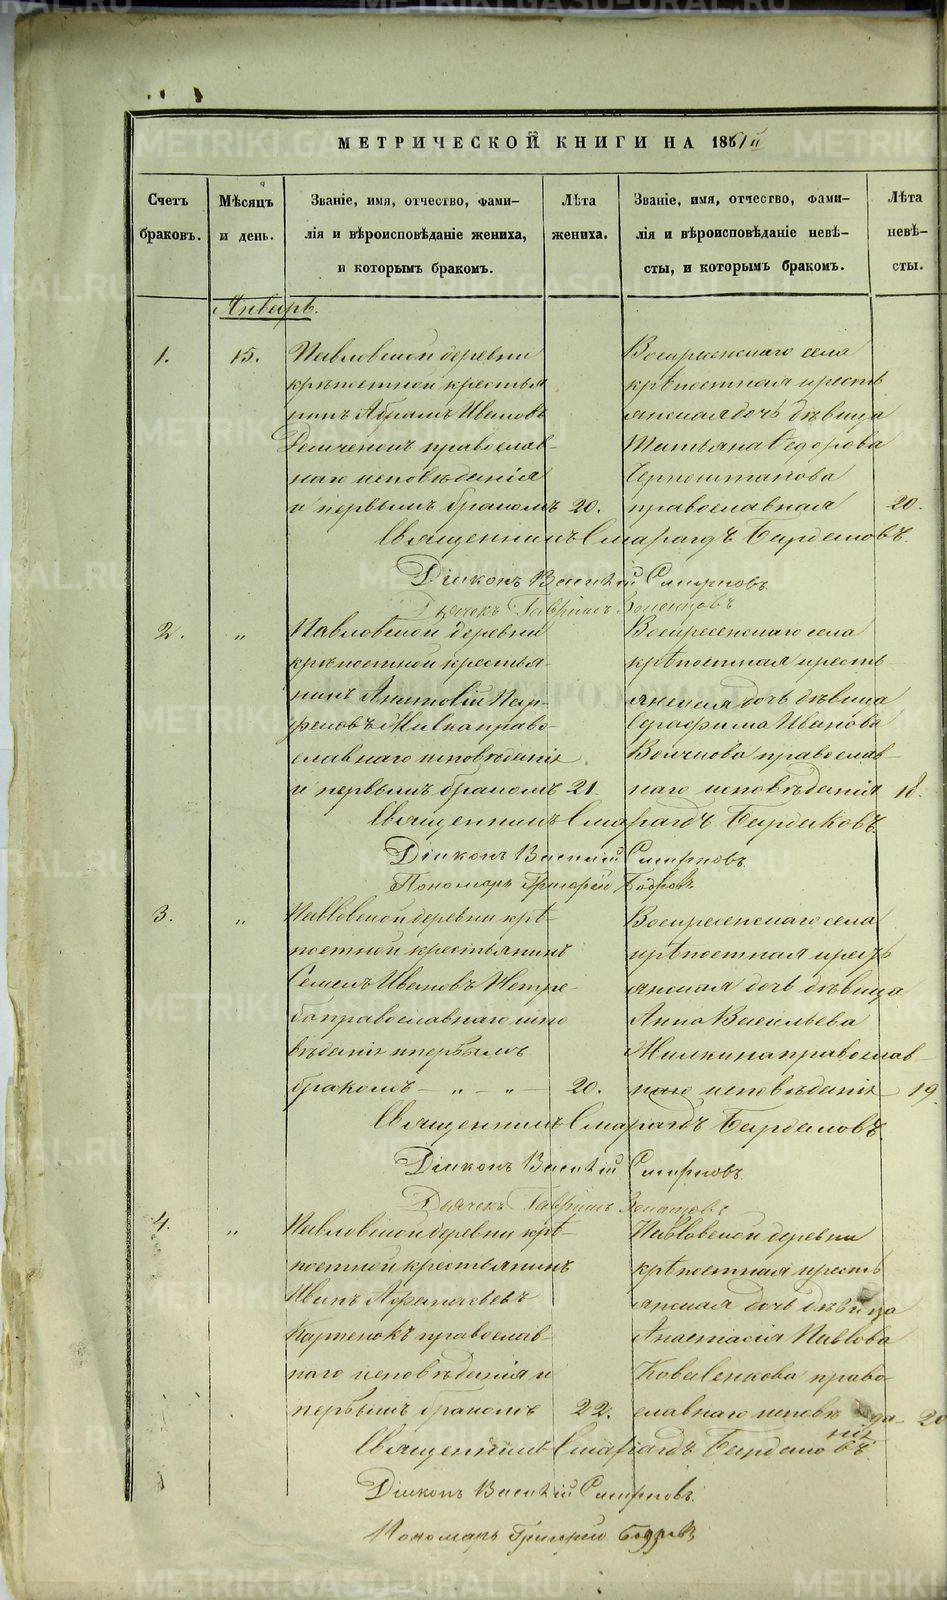 МЕТРИЧЕСКОЙ КНИГИ НА 1861й
Счетъ браковъ.
Мѣсяцъ и день.
Званіе, имя, отчество, фами-
лія и вѣроисповѣданіе жениха,
и которымъ бракомъ.
Лѣта жениха.
Званіе, имя, отчество, фами-
лія и вѣроисповѣданіе невѣ-
сты, и которымъ бракомъ.
Лѣта невѣ-
сты.
Январь.
1.
15.
Павловской деревни
крѣпостной крестья
нинъ Абрамъ Ивановъ
православ-
наго исповѣданія
и первымъ бракомъ
20.
Воскресенскаго села
крѣпостная кресть
янская дочь дѣвица
Татьяна Ѳедорова
Черноштанова
православная
20.
Священникъ Смарагдъ Бирюковъ.
Діаконъ Василій Смирновъ.
Дьячекъ Гавріилъ
2.
"
Павловской деревни
крѣпостной крестья-
нинъ Анатолій Пар-
феновъ Жилка право-
славнаго исповѣданія
и первымъ бракомъ
21
Воскресенскаго села
крѣпостная кресть
янская дочь дѣвица
Серафима Иванова
Волчкова православ-
наго исповѣданія
18.
Священникъ Смарагдъ Бирюковъ
Діаконъ Василій Смирновъ.
Пономарь Григорій Бобровъ
3.
"
Павловской деревни крѣ-
постной крестьянинъ
Семенъ Ивановъ Нетре-
ба православнаго испо
вѣданія и первымъ
бракомъ — " — " —
20.
Воскресенскаго села
крѣпостная кресть
янская дочь дѣвица
Анна Васильева
Жилкина православ-
наго исповѣданія
19.
Священникъ Смарагдъ Бирюковъ.
Діаконъ Василій Смирновъ.
Дьячекъ Гавріилъ
4.
"
Павловской деревни крѣ-
постной крестьянинъ
Иванъ Афанасьевъ
Картенокъ православ-
наго исповѣданія и
первымъ бракомъ
22.
Павловской деревни
крѣпостная кресть
янская дочь дѣвица
Анастасія Павлова
Коваленкова право-
славнаго исповѣда-
нія
20
Священникъ Смарагдъ Бирюковъ.
Діаконъ Василій Смирновъ.
Пономарь Григорій Бобровъ
METRIKI.GASO-URAL.RU